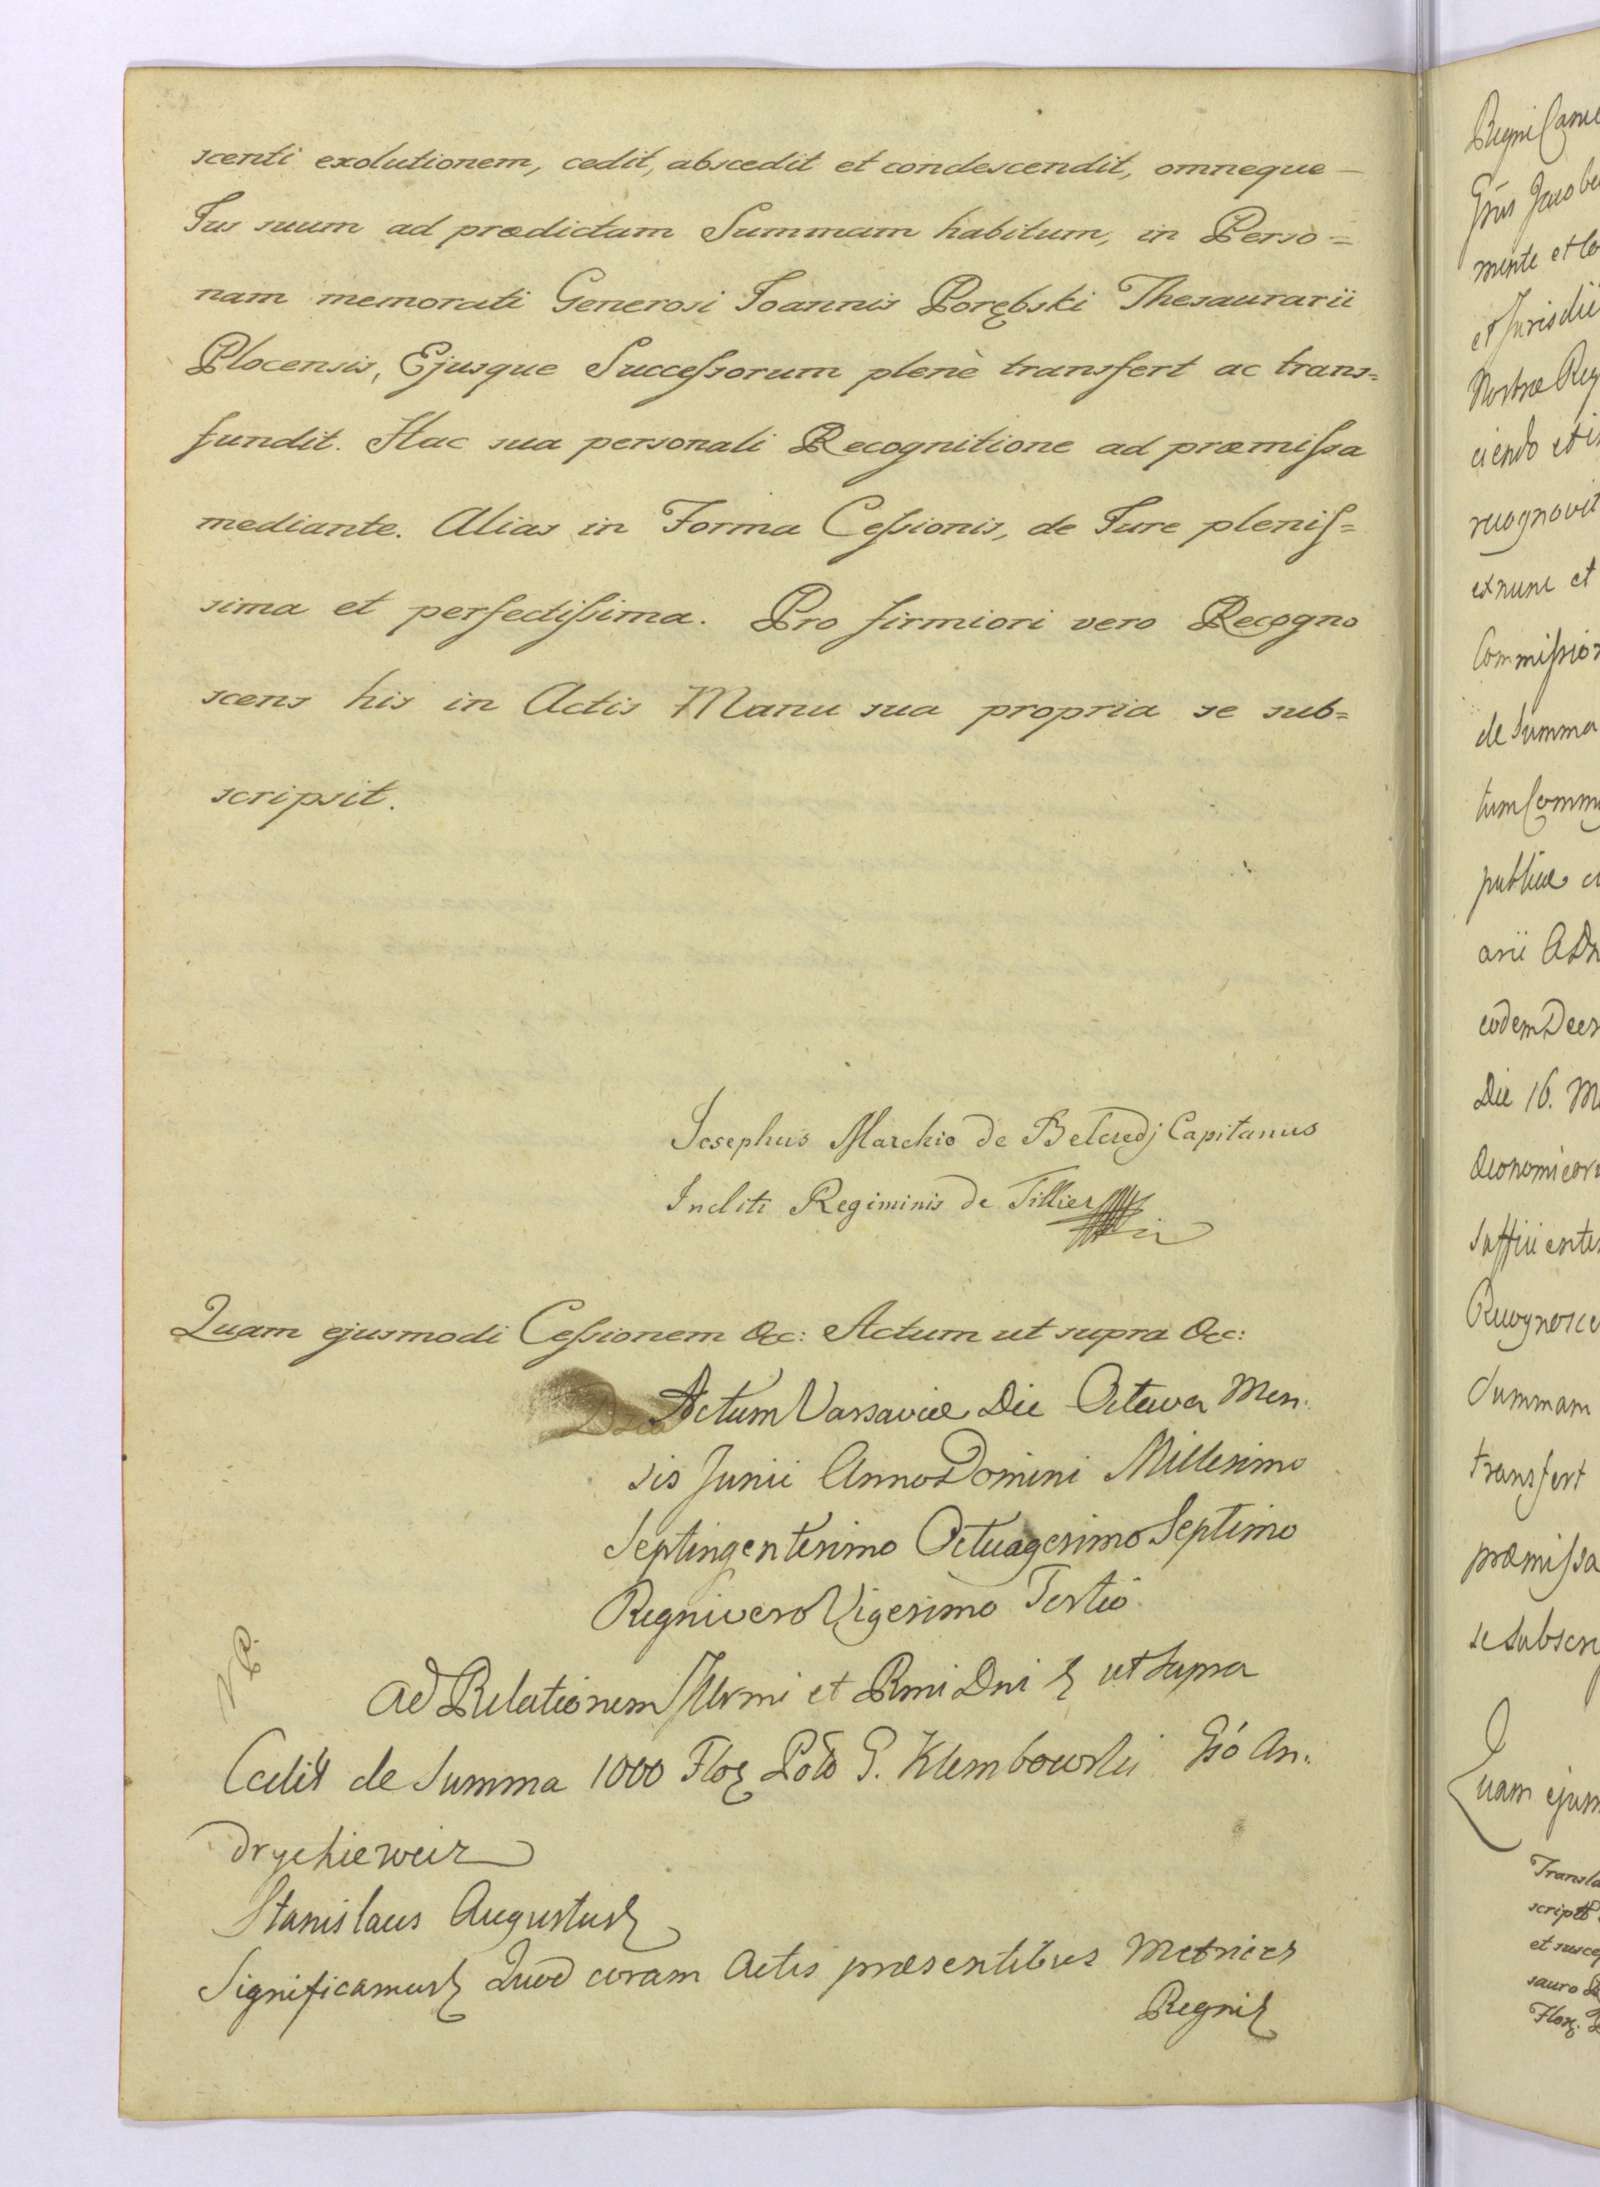 scenti exolutionem, cedit, abscedit et condescendit, omneque —
Jus suum ad prædictam Summam habitum, in Perso=
nam memorati Generosi Joannis Porębski Thesaurarii
Plocensis, Ejusque Succeſsorum plenè transfert ac trans=
fundit. Hac sua personali Recognitione ad præmiſsa
mediante. Alias in Forma Ceſsionis, de Jure pleniſ=
sima et perfectiſsima. Pro firmiori vero Recogno
scens his in Actis Manu sua propria se sub=
scripsit.
Josephus Marchio de Belcredj Capitanus
Incliti Regiminis de Tillier
Quam ejusmodi Ceſsionem &c: Actum ut supra &c:
Actum Varsaviæ Die Octava Men.
sis Junii Anno Domini Millesimo
Septingentesimo Octuagesimo Septimo
Regni vero Vigesimo Tertio.
NP.
Ad Relationem Illrmi et Rmi Dni ut supra
Cedit de Summa 1000 Flor Polo G. Klembowski Gsó An.
drychiewicz
Stanislaus Augustus
Significamus Quod coram Actis præsentibus Metrices
Regni
Regni
mente et
et Jurisdi
Nostræ Reg
ciendo et
recognovit
exnunc et
Commiſsion
de Summa
tum Comm
publicæ
arii
eodem Decr
Die 16. M
Œconomicor
sufficiente
Recognosce
Summam
transfert
præmiſsa
se subscr
Quam ejusm
Transla
script
et susce
sauro
Flor.